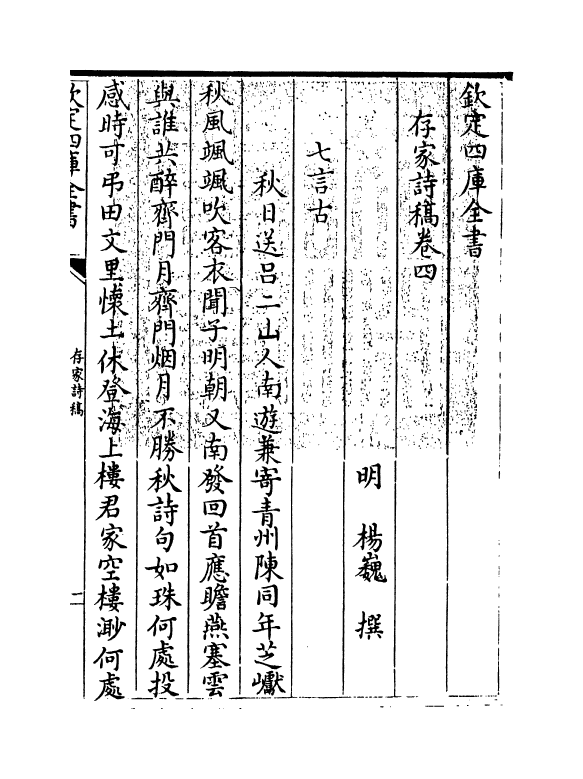 欽定四庫全書
存家詩稿卷四
明 楊巍 撰
七言古
秋日送呂二山人南遊兼寄青州陳同年芝巘
秋風颯颯吹客衣聞子明朝又南發回首應瞻燕塞雲
與誰共醉齊門月齊門烟月不勝秋詩句如珠何處投
感時可弔田文里懷土休登海上樓君家空樓渺何處
欽定四庫全書
存家詩稿